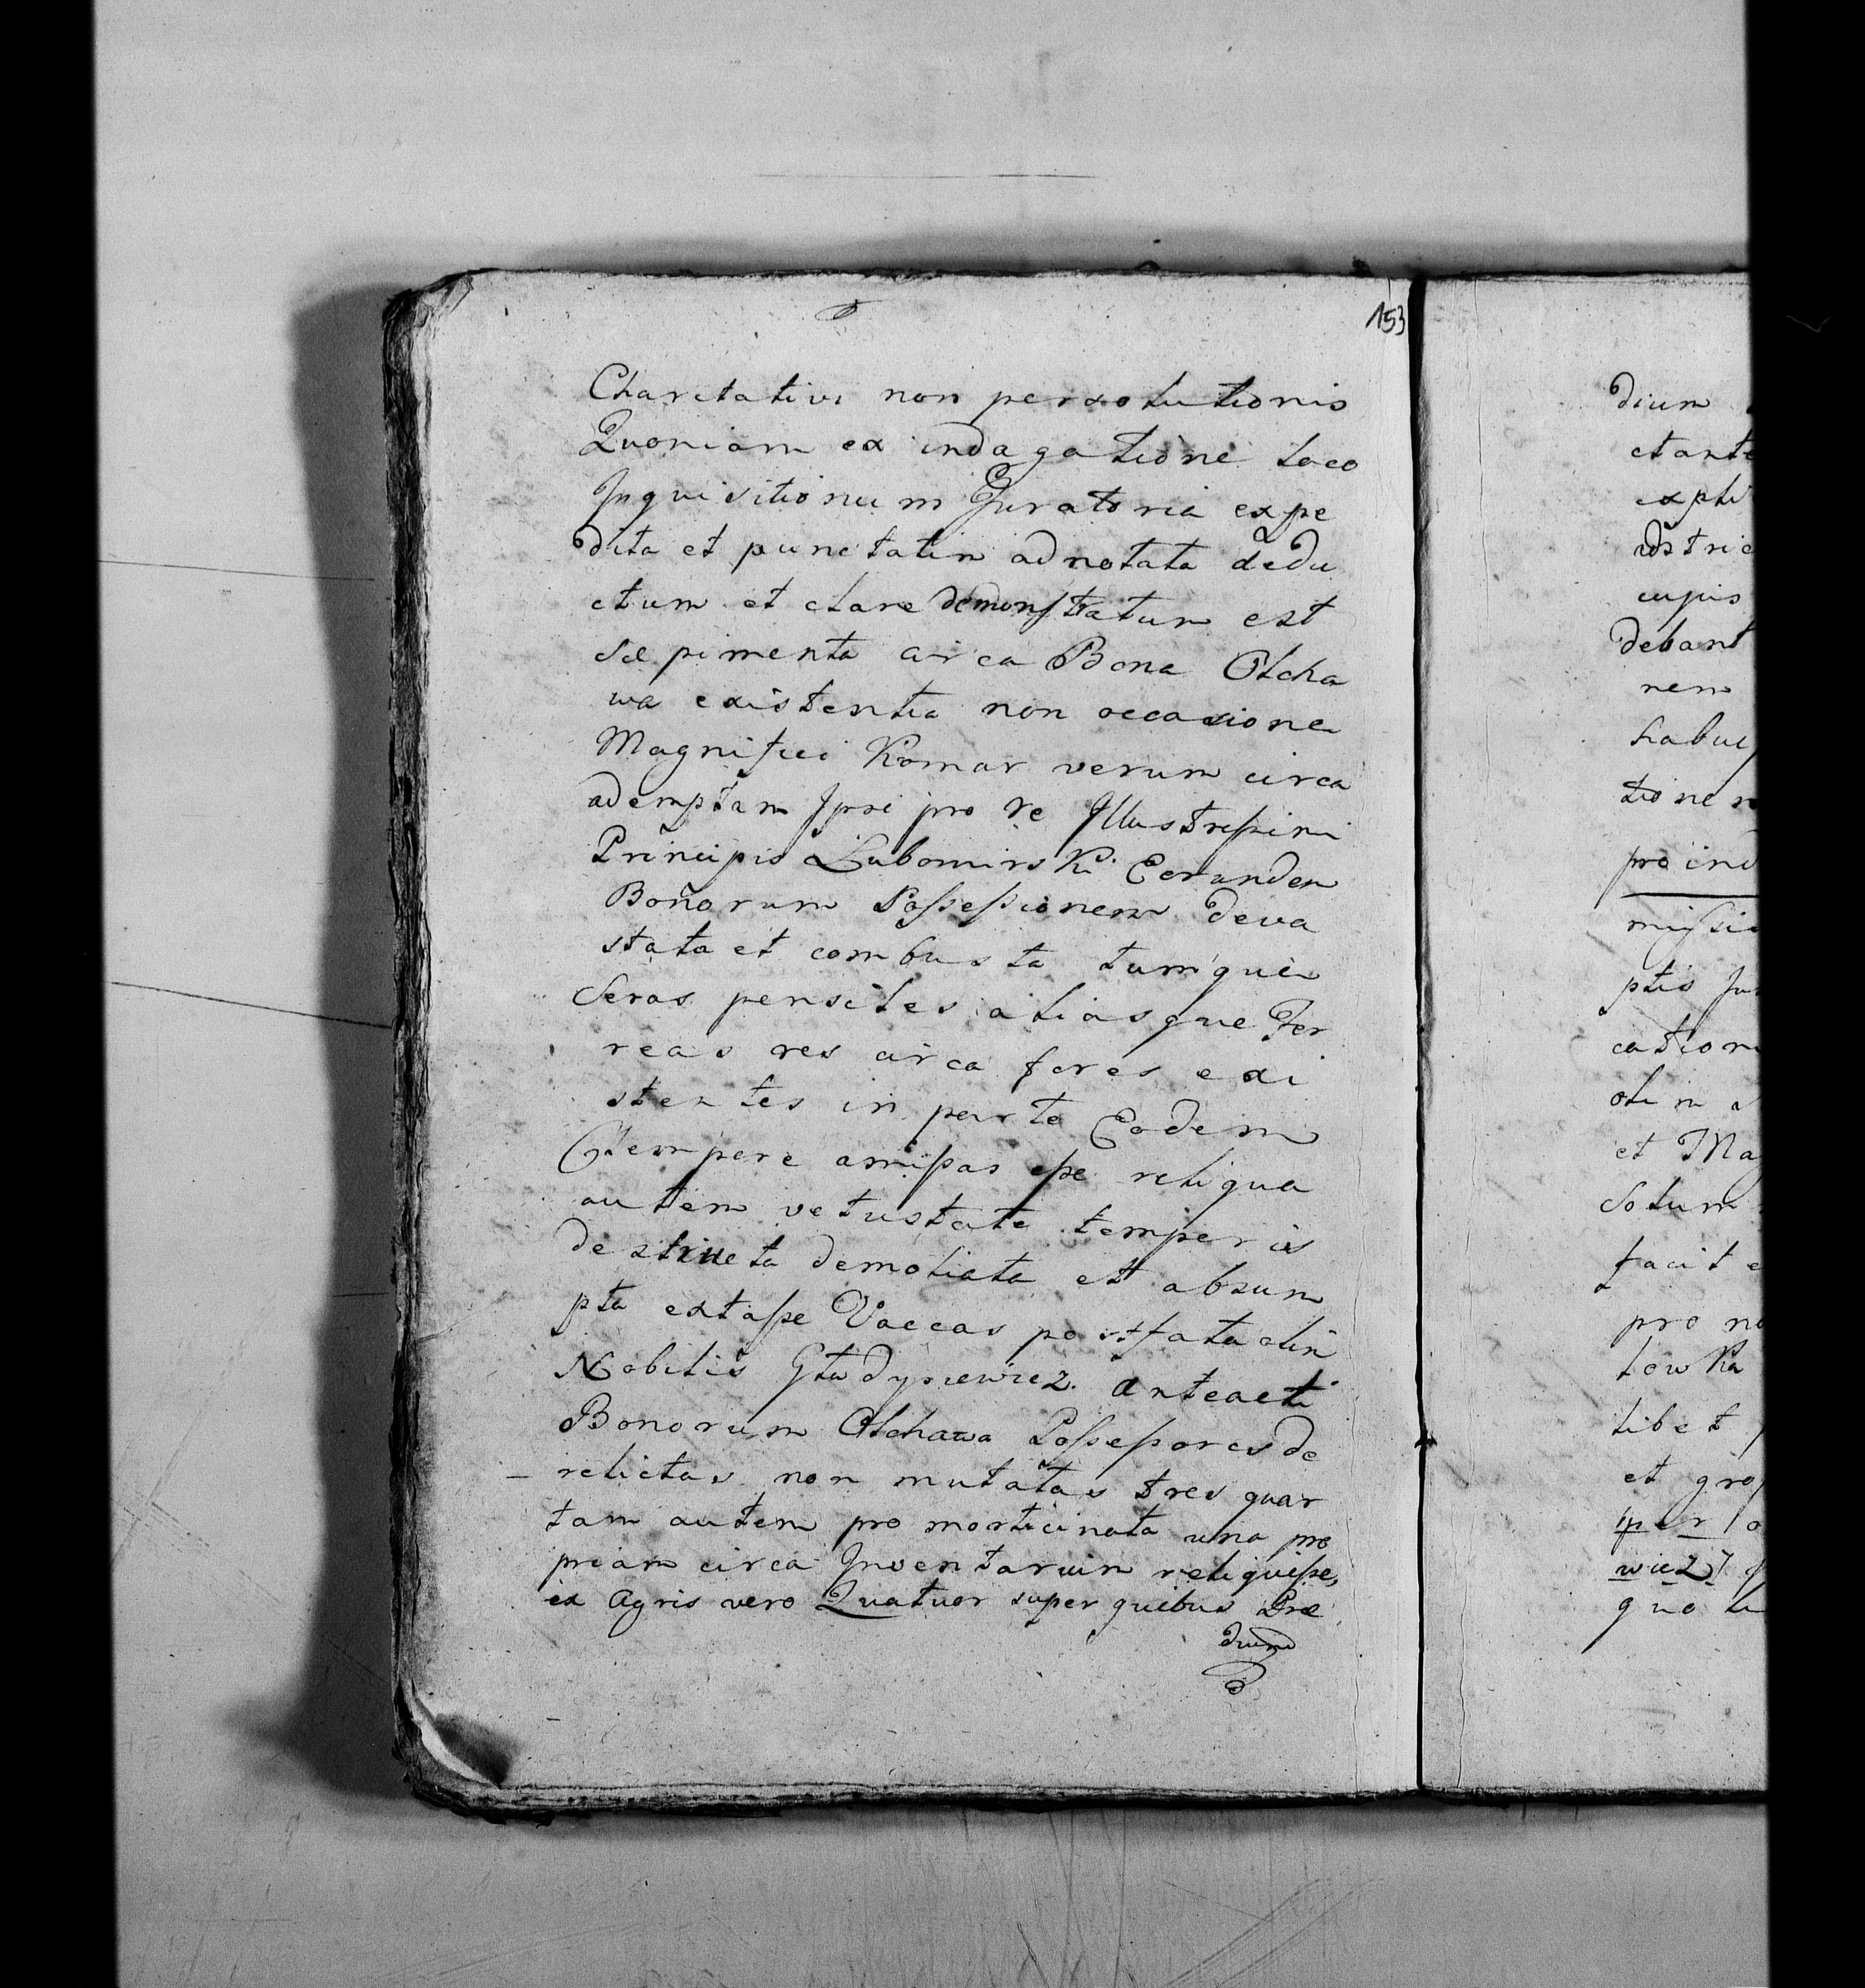 153
Charitativi non persolutionis
Quoniam ex indagatione loco
Inquisitionum Juratoria expe
dita et punctatim adnotata dedu
ctum et clare demonstratum est
Sæpimenta circa Bona Olcha
wa existentia non occasione
Magnifici Komar verum circa
ademptam Ipsi pro re Illustrissimi
Principis Lubomirski Eorundem
Bonorum Possessionem deva
stata et combusta tumque
Seras pensiles aliasque Fer
reas res circa fores exi
stentes in parte Eodem
Tempore amissas esse reliqua
autem vetustate temporis
destructa demoliata et absum
pta extasse Vaccas post fata olim
Nobilis Gładysiewicz Anteacti
Bonorum Olchawa Possessores de
relictas non mutatas tres quar
tam autem pro morticinata una pro
priam circa Inventarium reliquisse,
ex Agris vero Quatuor super quibus Præ
dium
dium
et ante
expli
ustric
cujus
debant
nem
habui
tionem
proind
missio
ptis Ju
cation
olim
et Ma
Solum
facit e
pro no
lowka
libet
et gro
iperlo
wicz
quo